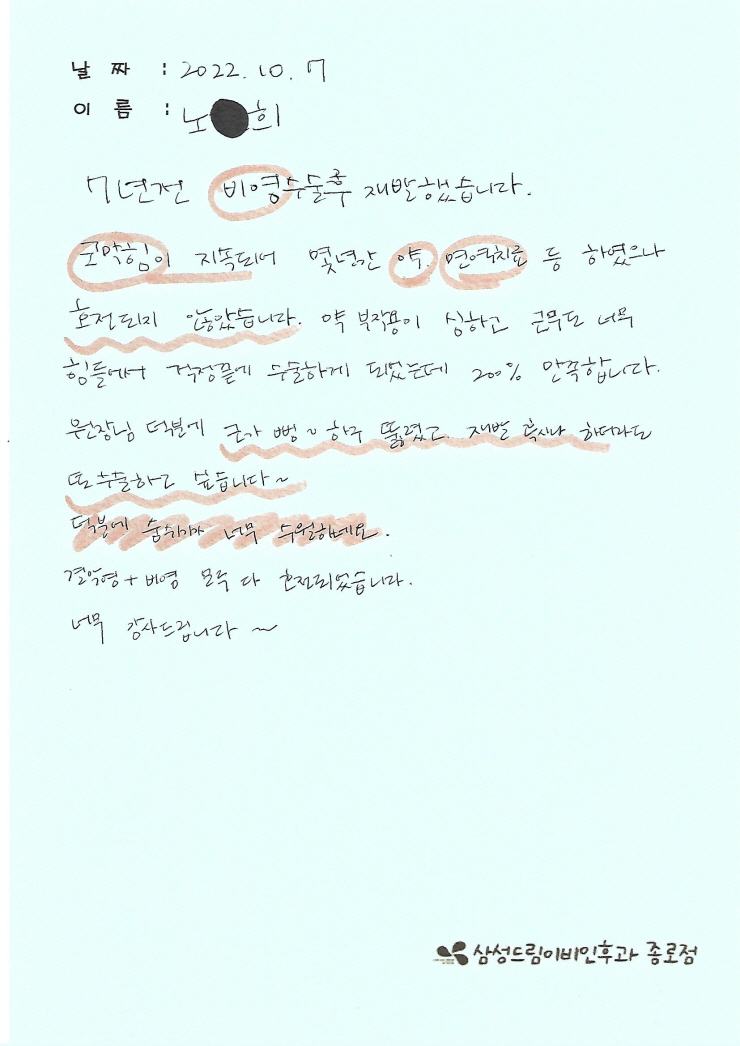 날 짜 : 2022. 10. 7
이 름 : 노 희
7년전 비염수술후 재발했습니다.
코막힘이 지속되어 몇년간 약, 면역치료 등 하였으나
호전되지 않았습니다. 약 부작용이 심하고 근무도 너무
힘들어서 걱정끝에 수술하게 되었는데 200% 만족합니다.
원장님 덕분에 코가 뻥~ 하구 뚫렸고, 재발 혹시나 하더라도
또 수술하고 싶습니다~
덕분에 숨쉬기가 너무 수월하네요.
결막염 + 비염 모두 다 호전되었습니다.
너무 감사드립니다 ~
삼성드림이비인후과 종로점